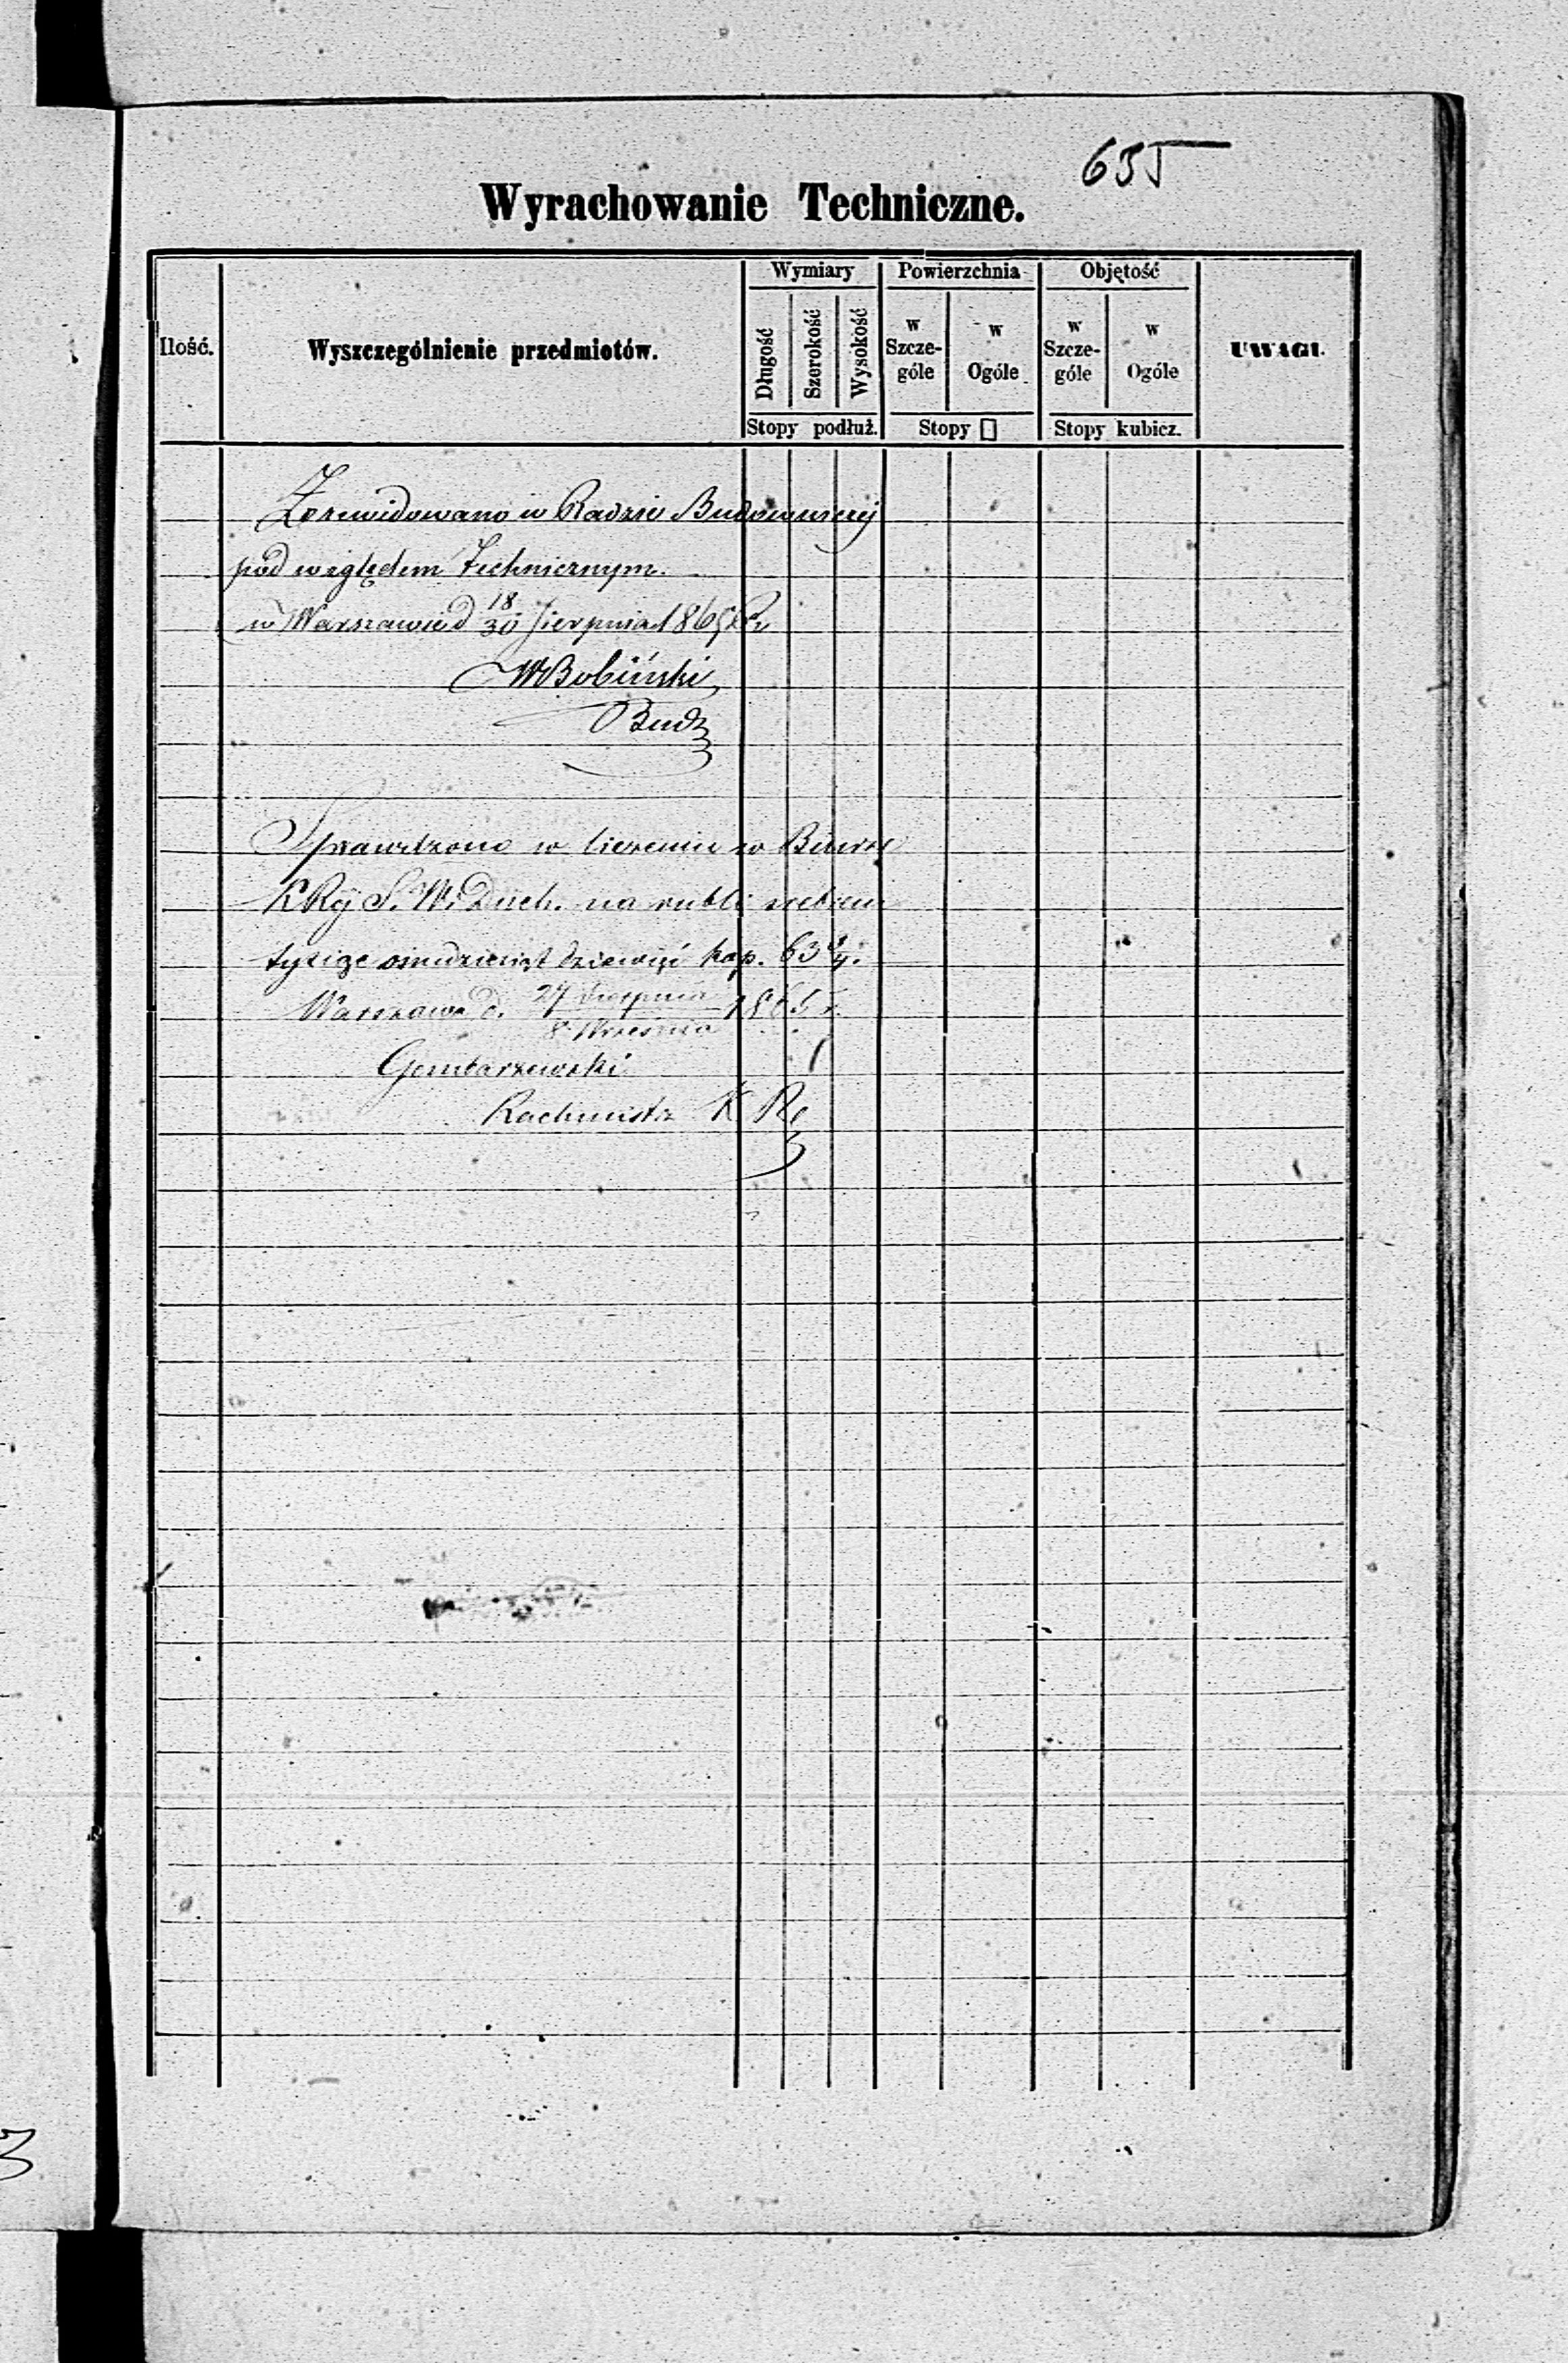 655
Wyrachowanie Techniczne.
Ilość.
Wyszczególnienie przedmiotów.
Wymiary
Długość
Szerokość
Wysokość
Stopy podłuż.
Powierzchnia
w Szcze-
góle
w
Ogóle
Stopy □
Objętość
w
Szcze-
góle
w
Ogóle
Stopy kubicz.
UWAGI.
Zrewidowano w Radzie Budowniczej
pod względem Technicznym.
w Warszawie d 18/30 Sierpnia 1865 r
WBobiński
Budz
Sprawdzono w liczeniu w Biurze
KRzS.W.iDuch. na rubli siedem
tysięcy ośmdziesiąt dziewięć kop. 63
Warszawa d. 27 Sierpnia
8 Września 1865 r.
Rachmistrz K R
3